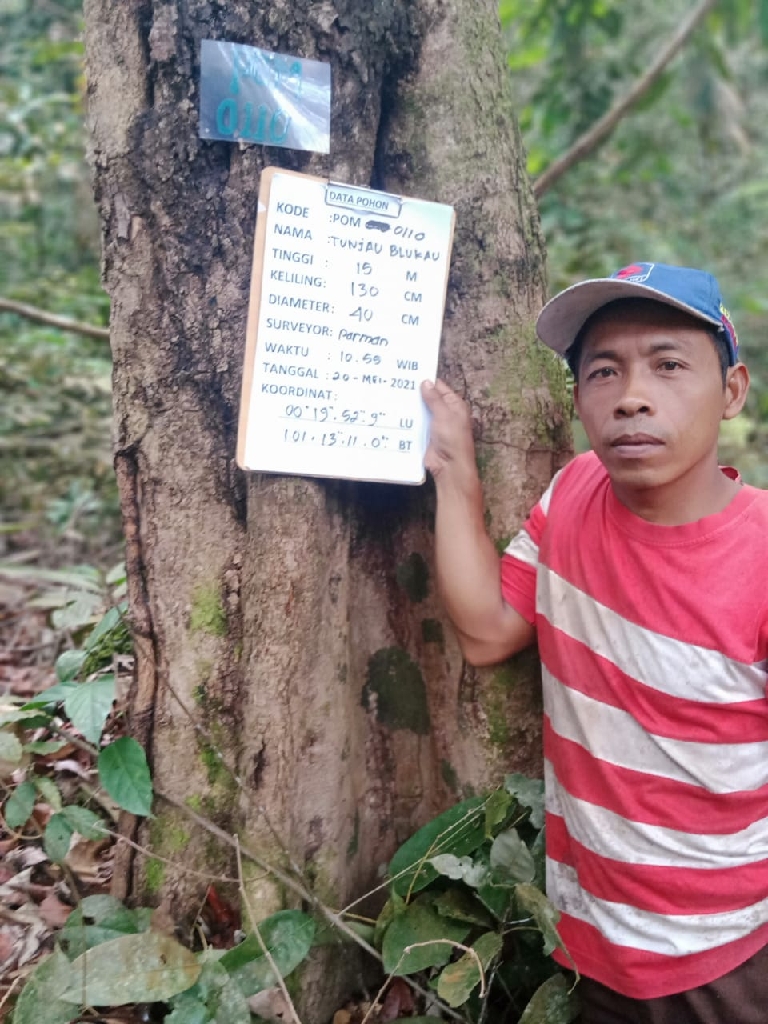 0110
DATA POHON
KODE : POM 0110
NAMA : TUNJAU BLUKAU
TINGGI : 15 M
KELILING: 130 CM
DIAMETER: 40 CM
SURVEYOR: Parman
WAKTU : 10.59 WIB
TANGGAL : 20-MEI-2021
KOORDINAT:
00° 19". 52". 9" LU
101 . 13". 11. 0" BT